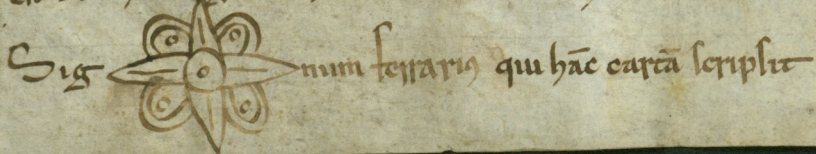 Sig num ferrariꝰ qui hāc cartā scripsit